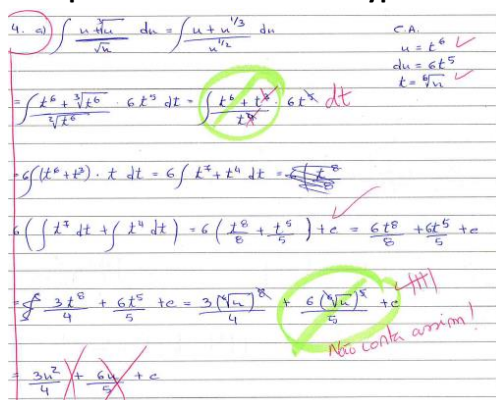 4. a) ∫ (u + ∛u)/√u du = ∫ (u + u^{1/3})/u^{1/2} du
C.A.
u = t⁶ ✓
du = 6t⁵
t = ⁶√u ✓
= ∫ (t⁶ + ∛t⁶)/²√t⁶ · 6t⁵ dt = ∫ (t⁶ + t³)/t⁴ · 6t⁵ dt
= 6∫(t⁶+t³) · t dt = 6∫ t⁷ + t⁴ dt =
6(∫ t⁷ dt + ∫ t⁴ dt) = 6(t⁸/8 + t⁵/5) + c = 6t⁸/8 + 6t⁵/5 + c
= 3t⁸/4 + 6t⁵/5 + c = 3(⁶√u)⁸/4 + 6(⁶√u)⁵/5 + c
Não conta assim!
= 3u²/4 + 6u/5 + c